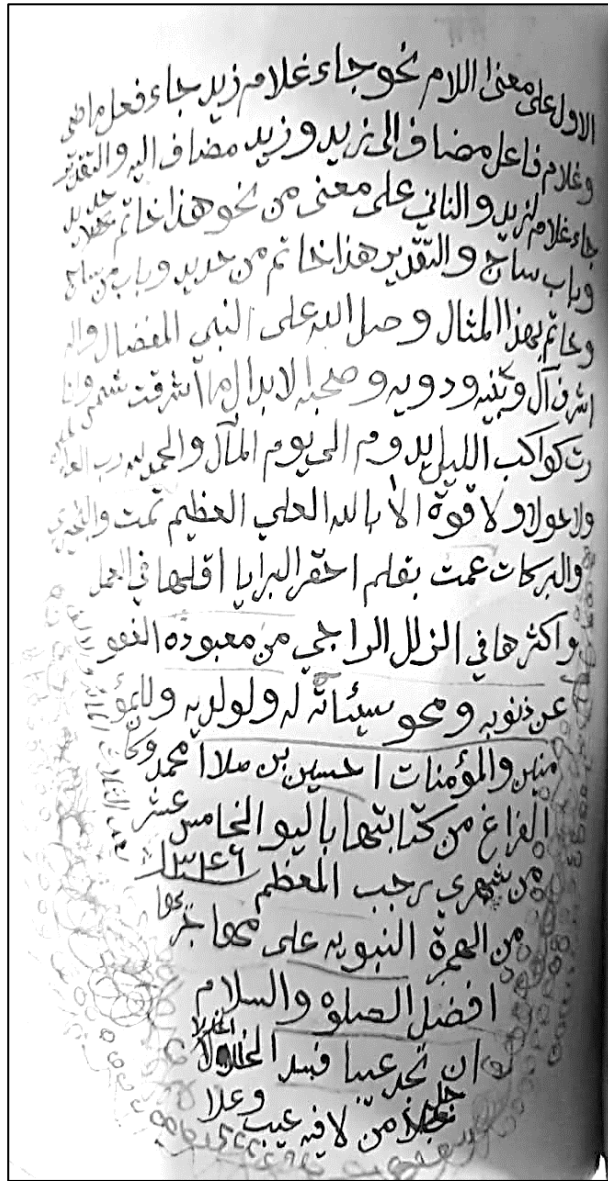 الاول على معنى اللام نحو جاء غلام زيد جاء فعل ماضي
وغلام فاعل مضاف الى زيد وزيد مضاف اليه والتقدير
جاء غلام لزيد والثاني على معنى من نحو هذا خاتم حديد
وباب ساج والتقدير هذا خاتم من حديد وباب من ساج
وخاتم بهذا المثال وصل الله على النبي المفضال واله
اشرف آل وبنيه وذويه وصحبه الابدال ما اشرقت شمس وانا
رت كواكب الليل يدوم الى يوم المآل والحمد لله رب
ولا حول ولا قوة الا بالله العلي العظيم تمت والخير
والبركات عمت بقلم احقر البرايا اقلها في العمل
واكثرها في الزلل الراجي من معبوده العفو
عن ذنوبه ومحو سيئاته له ولوالديه وللمؤ
منين والمؤمنات احسين بن ملا امحمد وكان
الفراغ من كتابتها باليو الخامس عشر
من شهري رجب المعظم ١٣٤٦
من الهجرة النبويه على مهاجرها
افضل الصلوة والسلام
وان تجد عيبا فسد الخللا
جل من لا فيه عيب وعلا